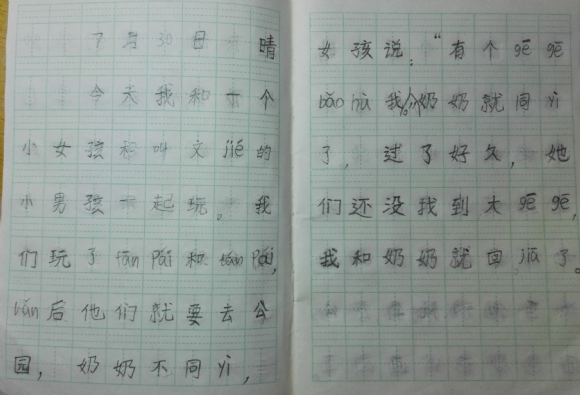 7月30日 晴
今天我和一个
小女孩和叫文jié的
小男孩一起玩。我
们玩了 pái和 pái,
后他们就要去公
园，奶奶不同yì，
女孩说："有个gē gē
bǎo hù我们奶奶就同yì
了，过了好久，她
们还没找到大gē gē,
我和奶奶就回jiā了。